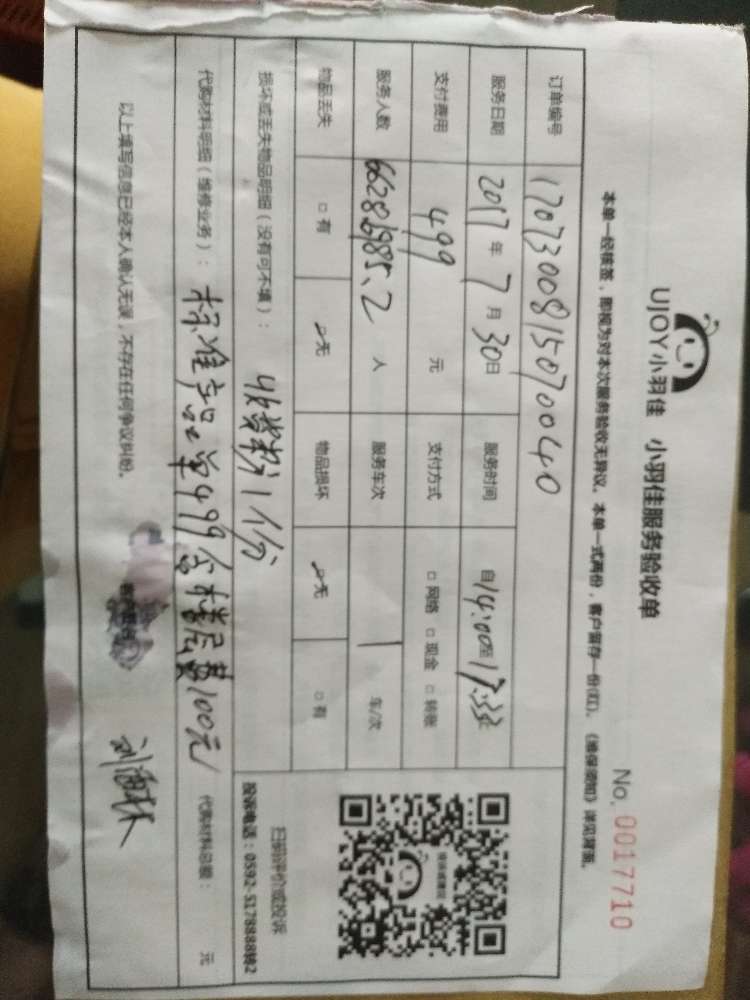 UJOY小羽佳 小羽佳服务验收单
No. 0017710
本单一经核签，即视为对本次服务验收无异议。本单一式两份，客户留存一份(红)。《维保须知》详见背面。
订单编号 170730081507 0040
服务日期 2017年 7月 30日 服务时间 自14:00至17:33
支付费用 499 元 支付方式 □ 网络 □ 现金 □ 转账
服务人数 66286985、2 人 服务车次 1 车/次
物品丢失 □ 有 □ 无 物品损坏 □ 无 □ 有
损坏或丢失物品明细（没有可不填）： 1份
扫码评价或投诉
投诉电话：0592-5178888转2
代购材料明细（维修业务）： 标准产品单499含楼层费100元 代购材料总额： 元
以上填写信息已经本人确认无误，不存在任何争议纠纷。